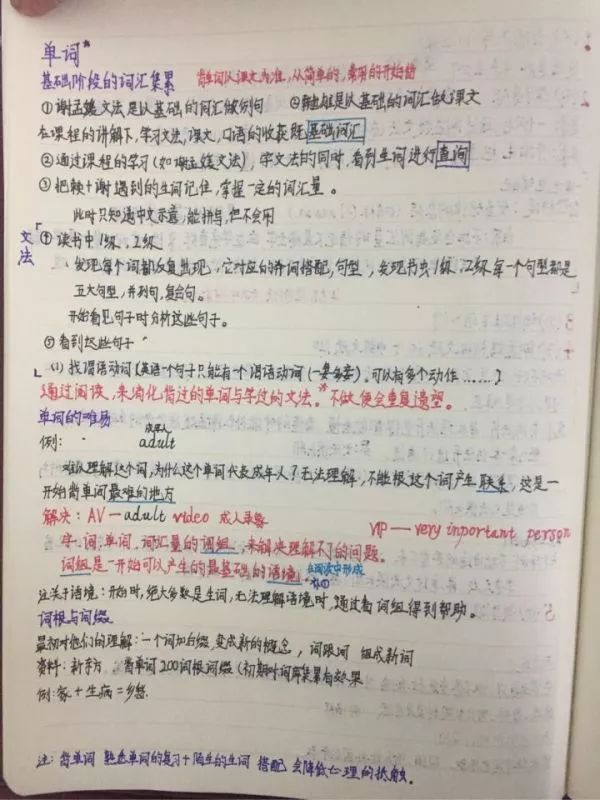 单词*
基础阶段的词汇集累 背单词从课文为准,从简单的,常用的开始背
①谢孟媛文法是以基础的词汇做例句 ②赖世雄是以基础的词汇做课文
在课程的讲解下,学习文法,课文,口语的收获既基础词汇
②通过课程的学习(如谢孟媛文法),学文法的同时,看到生词进行查询
③把赖+谢遇到的生词记住,掌握一定的词汇量。
此时只知道中文示意,能拼写,但不会用
文法
④读书虫1级、2级
发现每个词都反复出现,它对应的
词搭配,句型,发现书虫1级、2级每一个句型都是
五大句型,并列句,复合句。
开始看见句子时分析这些句子。
⑤看到这些句子
(1)找谓语动词(英语一个句子只能有一个谓语动词(一妻多妾)。可以有多个动作……)
通过阅读,来消化背过的单词与学过的文法。*不做便会重复遗忘。
单词的难易
成年人
例: adult
难以理解这个词,为什么这个单词代表成年人?无法理解,不能根这个词产生联系,这是一
开始背单词最难的地方
解决:AV—adult video 成人录影 VIP—very important person
字、词、单词、词汇量的词组,来解决理解不了的问题。
词组是一开始可以产生的最基础的语境。在阅读中形成
注关于语境:开始时,绝大多数是生词,无法理解语境时,通过看词组得到帮助。
词根与词缀
最初对他们的理解:一个词加后缀,变成新的概念,词跟词 组成新词
资料:新东方 背单词200词根词缀(初期对词库集累有效果
例:家+生病=乡愁
注:背单词 熟悉单词的复习+陌生的生词 搭配 会降低心理的抵触。